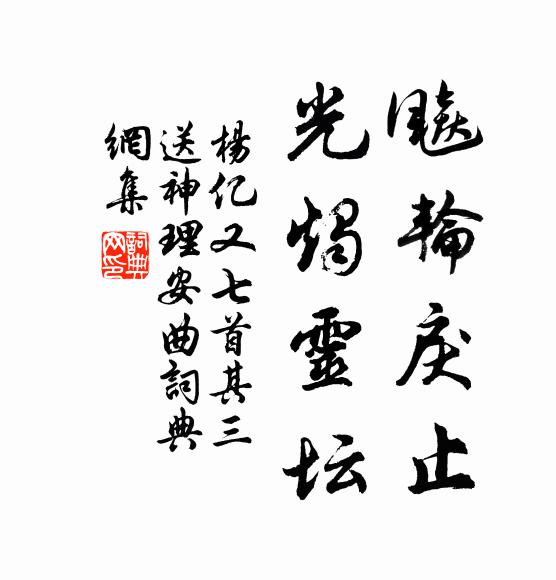 飈輪戾止
光燭靈坛
楊亿又七首其三
送神理安曲詞典
網集
詞典
网印